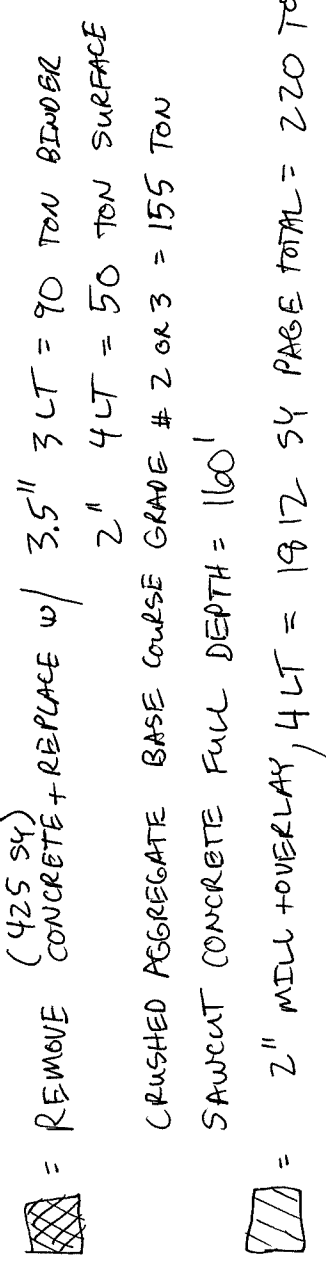 = REMOVE (425 SY) CONCRETE + REPLACE W/ 3.5" 3 LT = 90 TON BINDER
2" 4 LT = 50 TON SURFACE
CRUSHED AGGREGATE BASE COURSE GRADE # 2 OR 3 = 155 TON
SAWCUT CONCRETE FULL DEPTH = 160'
= 2" MILL + OVERLAY, 4 LT = 1912 SY PAGE TOTAL = 220 TO